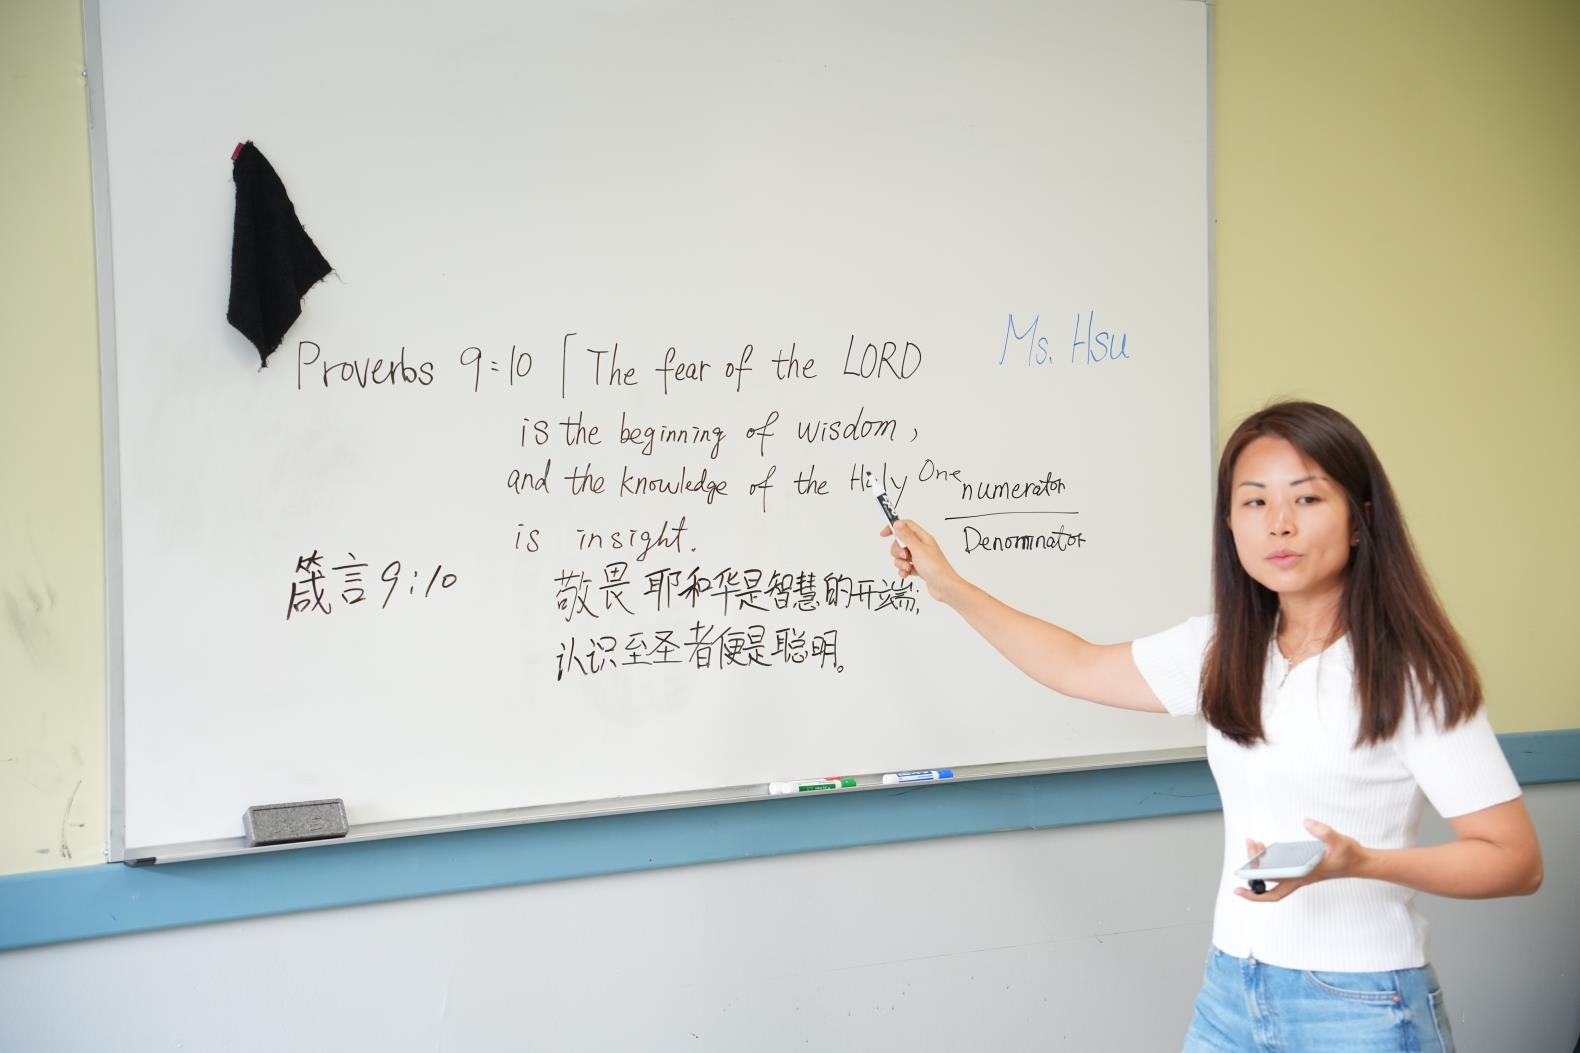 Proverbs 9:10 「The fear of the LORD
is the beginning of wisdom,
and the knowledge of the Holy One
is insight.
Ms. Hsu
numerator
Denominator
箴言9:10
敬畏耶和华是智慧的开端;
认识至圣者便是聪明。